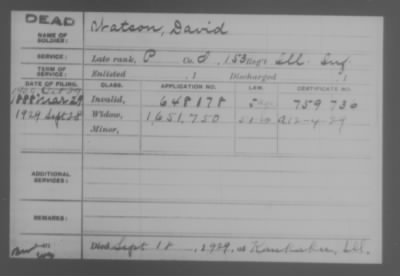 DEAD
NAME OF SOLDIER:
Watson, David
SERVICE:
Late rank, P Co. I, 153 Reg't Ill. Inf.
TERM OF SERVICE:
Enlisted , 1 Discharged , 1
DATE OF FILING. CLASS. APPLICATION NO. LAW. CERTIFICATE NO.
1888 Mar 29 Invalid, 648178 759730
1929 Sept 28 Widow, 1,651,750 A12-4-29
Minor,
ADDITIONAL SERVICES:
REMARKS:
Died Sept 18, 1929, at Kankakee, Ill.